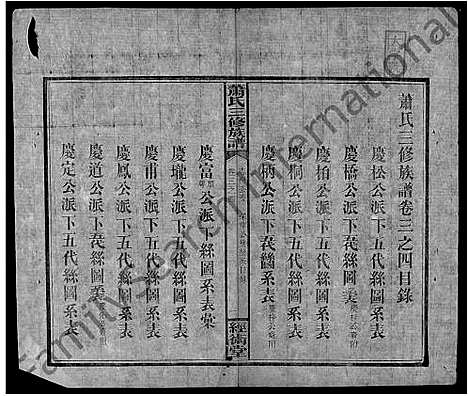 蕭氏三修族譜卷三之四目錄
慶松公派下五代絲圖系表
慶橋公派下五代絲圖系表
慶柏公派下五代絲圖系表
慶桐公派下五代絲圖系表
慶柄公派下五茂圖系表
蕭氏三修族譜
經術堂
慶富公派絲圖系表
慶瓏公派下五代絲圖系表
慶甫公派下五代絲圖系表
慶鳳公派下五代絲圖系表
慶道公派下絲圖系表
慶定公派下五代絲圖系表
FamilySearch International